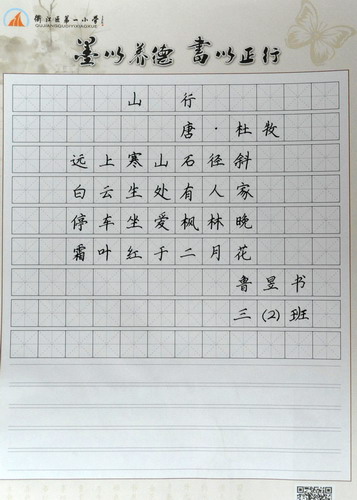 衢江区第一小学
QUJIANGQUDIYIXIAOXUE
墨以养德 書以正行
山行
唐·杜牧
远上寒山石径斜
白云生处有人家
停车坐爱枫林晚
霜叶红于二月花
鲁昱书
三(2)班